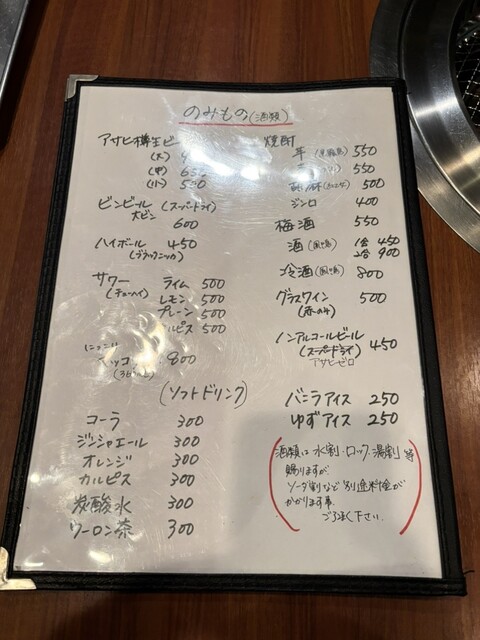 のみもの(酒類)
アサヒ樽生ビ
(大)
(中) 650
(小) 550
ビンビール (スーパードライ)
大ビン
600
ハイボール 450
(ブラックニッカ)
サワー ライム 500
(チューハイ) レモン 500
プレーン 500
ルピス 500
800
焼酎
芋 550
550
500
ジンロ 400
梅酒 550
酒 1合 450
2合 900
冷酒 800
グラスワイン 500
(赤のみ)
ノンアルコールビール
(スーパードライ) 450
アサヒゼロ
バニラアイス 250
ゆずアイス 250
(ソフトドリンク)
コーラ 300
ジンジャエール 300
オレンジ 300
カルピス 300
炭酸水 300
ウーロン茶 300
酒類は水割・ロック・湯割 等
賜りますが
ソーダ割など別途料金が
かかります事
ご了承く下さい